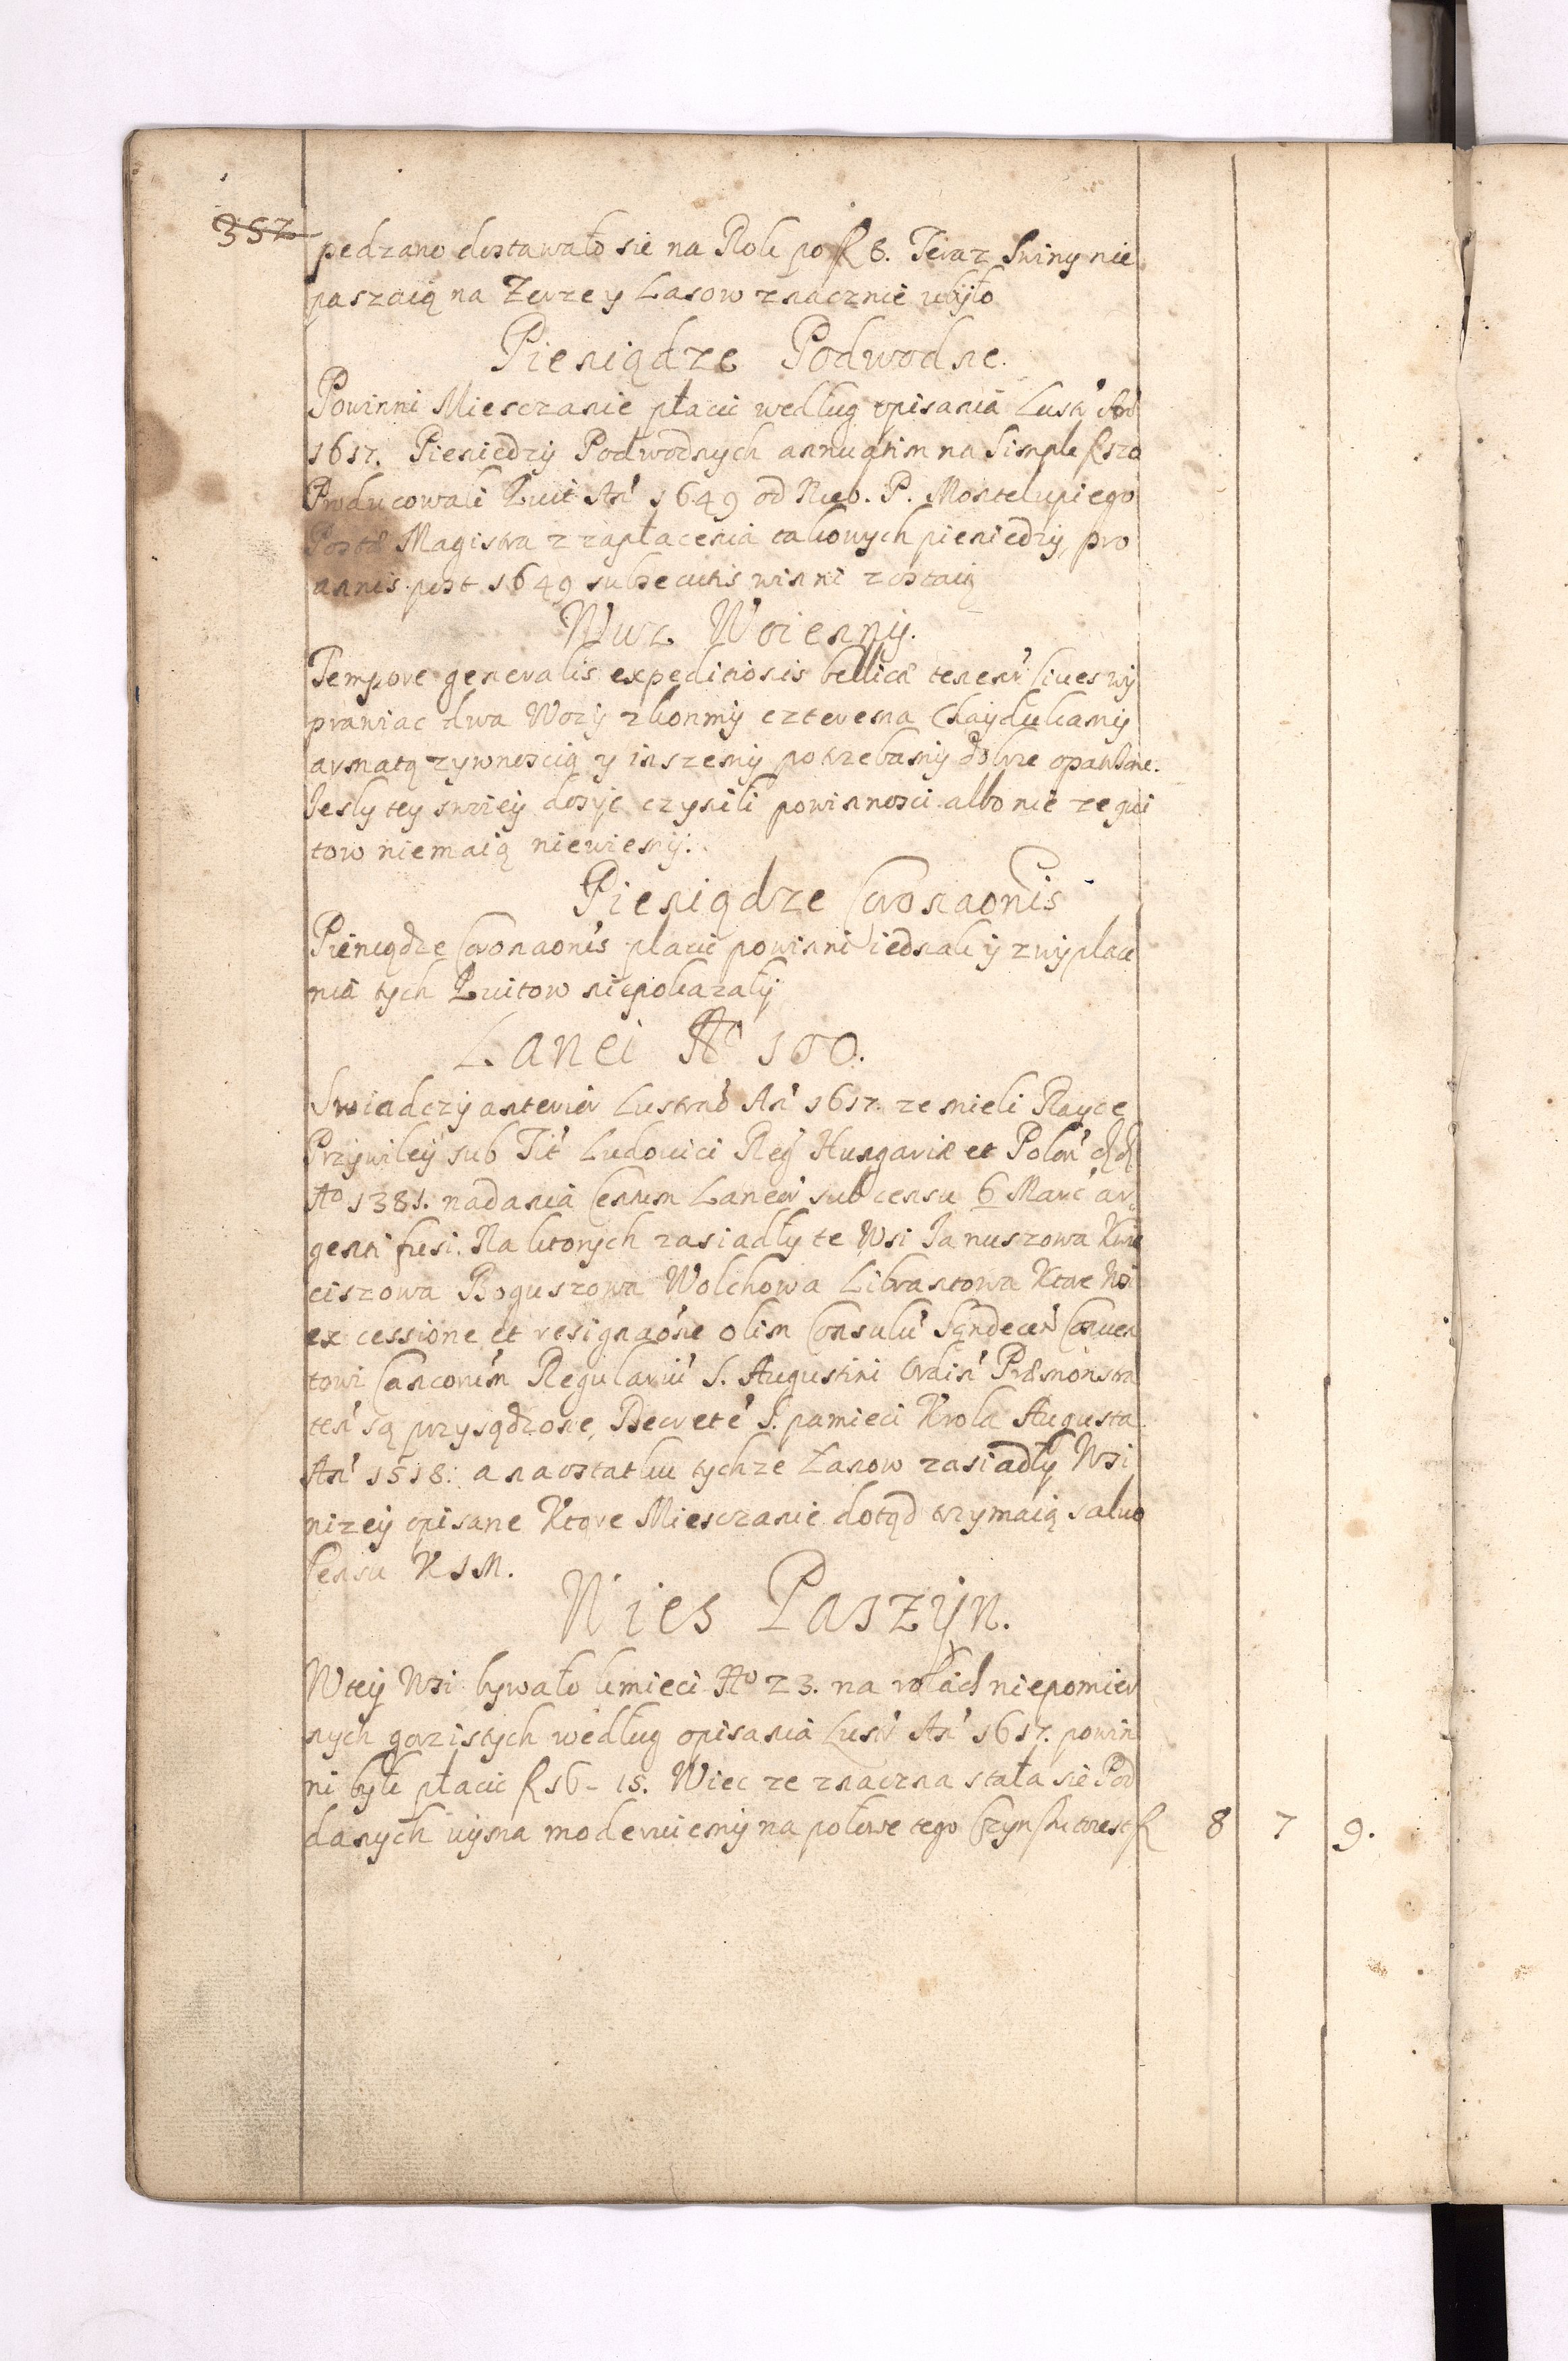 352
pedzano dostawało sie na Rok po fl 8. Teraz Swiny nie
paszaią na Zerze y Lasow znacznie ubyło
Pieniądze Podwodne.
Powinni Miesczanie płacić według opisania Lustr' An'
1617. Pieniedzy Podwodnych annuatim na Simple fl 20
Producowali Quit An' 1649 od Nieb. P. Montelupiego
Postæ Magistra z zapłacenia takowych pieniedzy, pro
annis post 1649 subsecutis winni zostaią
Wuz Woienny.
Tempore generalis expeditionis bellicæ tenent' Cives wy
prawiac dwa Wozy z konmy czterema Chaydukamy
armatą zywnoscią y inszemy potrzebamy dobrze opatrzone.
Iesly tey swoiey dosyc czynili powinnosci albo nie ze qwi
tow niemaią niewiemy.
Pieniądze Coronaonis
Pieniądze Coronaonis placić powinni iednak y z wyplace
nia tych Quitow niepokazaly
Lanei No 100.
Swiadczy anterior Lustrao An' 1617. ze mieli Rayce
Przywiley sub Tit' Ludovici Reg Hungariæ et Polon'
Ao 1381. nadania Centum Laneor' sub censu 6 Marc' ar
genti fusi. Na ktorych zasiadły te Wsi Ianuszowa Kwie
ciszowa Boguszowa Wolchowa Librantowa Ktore Wsi
ex cessione et resignaone olim Consulu' Sandecen' Conven
towi Canonicorum Regulariu' S. Augustini Ordin' Præmonstra
ten' są przysądzone, Decrete' S. pamieci Krola Augusta
An' 1518. a na ostatku tychze Łanow zasiadły Wsi
nizey opisane Ktore Miesczanie dotąd trzymaią salvo
Censu K I M.
Wies Paszyn.
W tey Wsi bywało kmieci No 23. na rolach niepomier
nych gorzistych według opisania Lustr' An' 1617. powin
ni byli płacic fl 16 - 15. Wiec ze znaczna stała sie Pod
danych uyma moderuiemy na polowe tego Czynszu to iest fl 8 7 9.